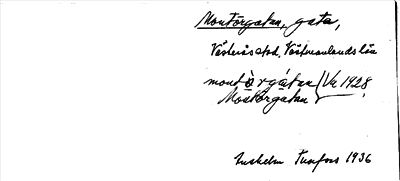 Montörgatan, gata,
Västerås stad. Västmanlands län
montörgatan (Vu 1928
Montörgatan
Linshelm Tunfors 1936